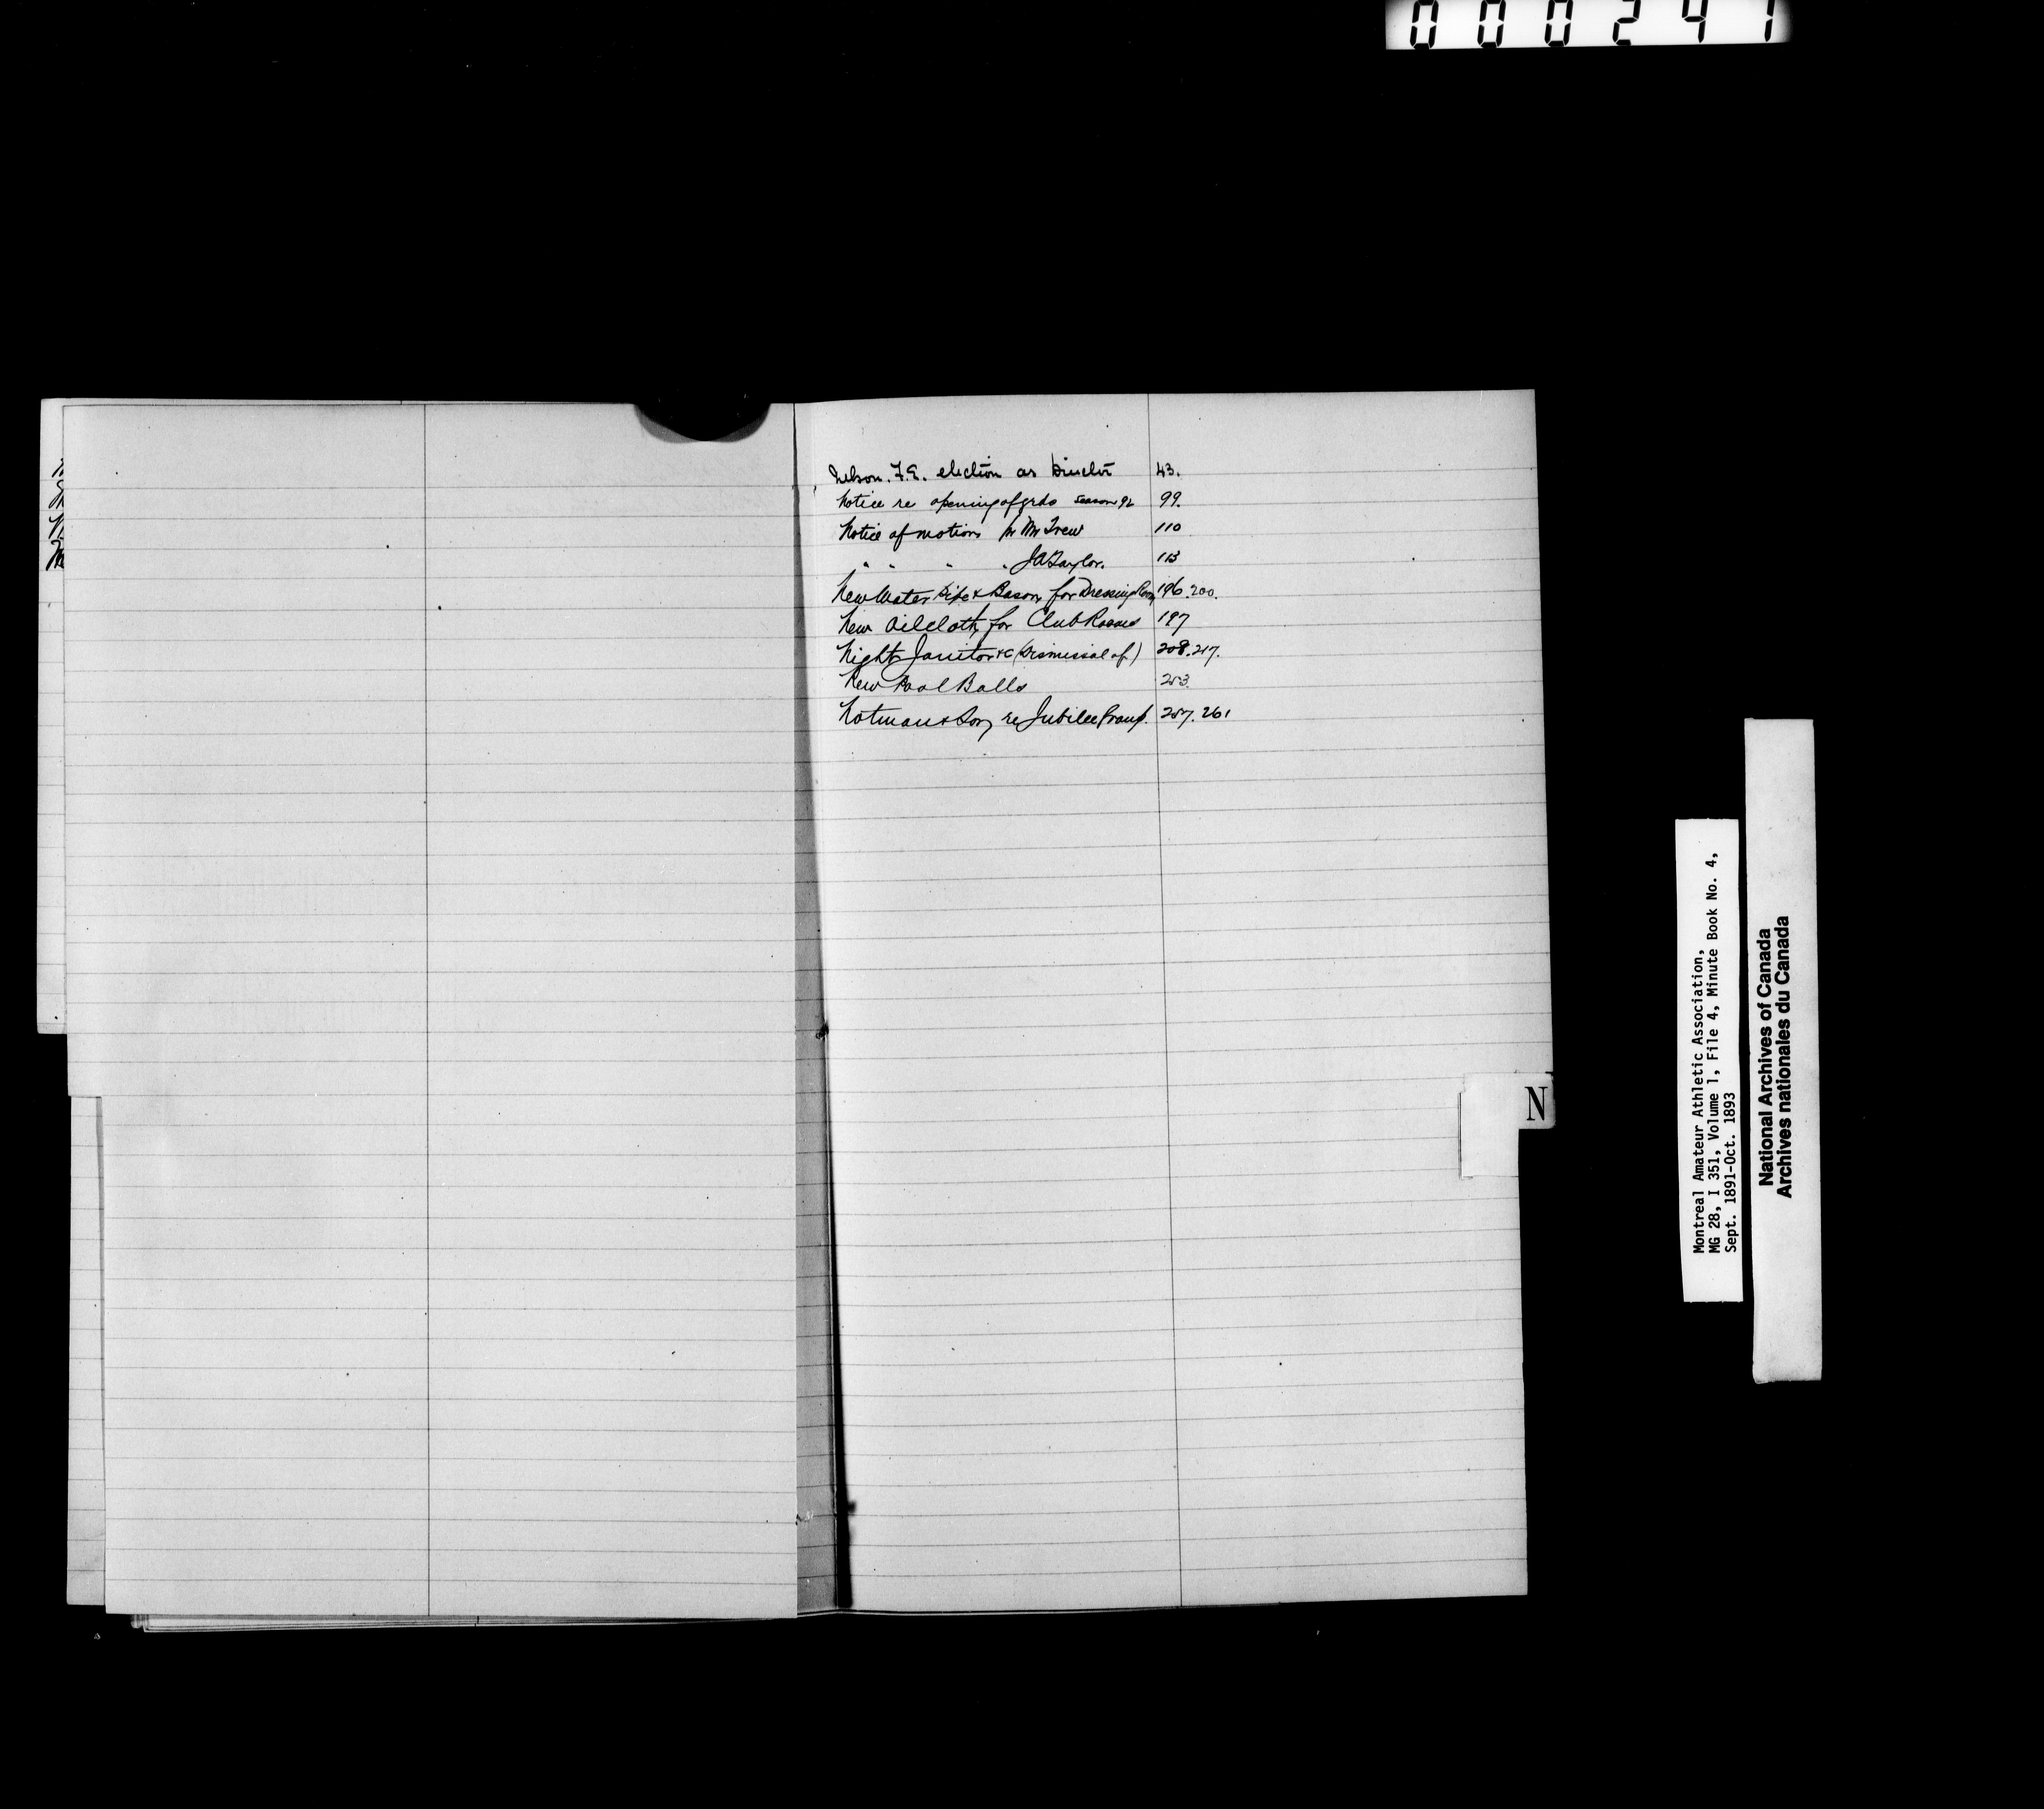 000241
Nelson. F.E. election as Director 43.
Notice re opening of grds season 92 99.
Notice of motion by Mr Trew 110
" " " " J A Taylor. 113
New Water Pipe & Bason for Dressing Room 196.200.
New Oilcloth for Club Rooms 197
Night Janitor &c (Dismissal of) 208.217.
New Pool Balls 253
Notman & Son re Jubilee Group. 257.261
N
Montreal Amateur Athletic Association,
MG 28, I 351, Volume 1, File 4, Minute Book No. 4,
Sept. 1891-Oct. 1893
National Archives of Canada
Archives nationales du Canada